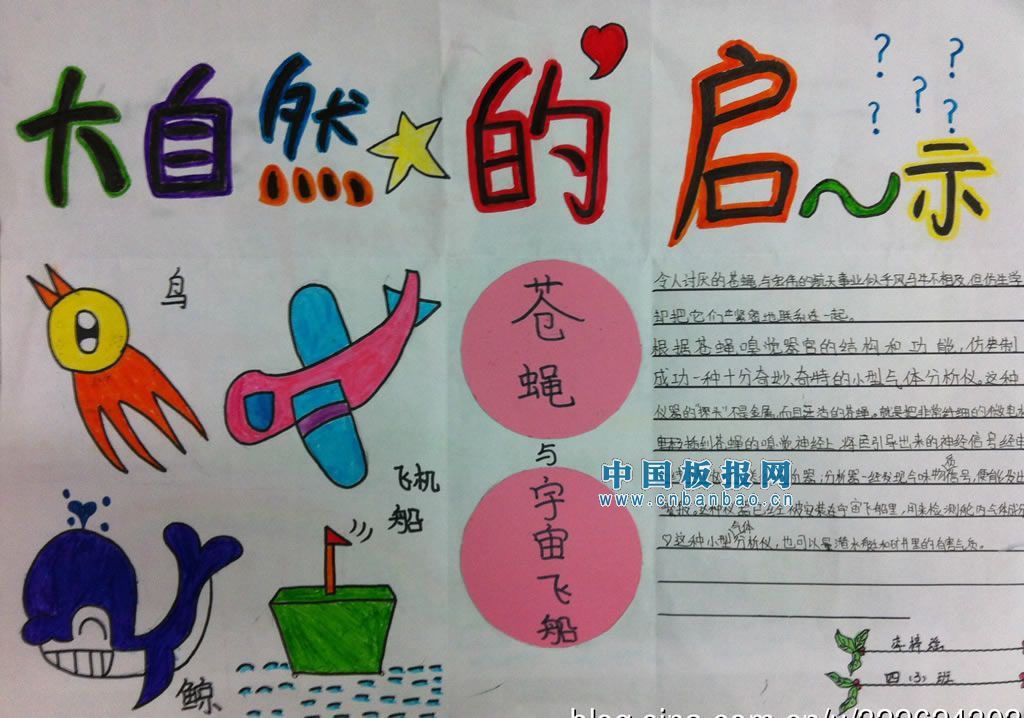 大自然的启示
鸟
飞机
船
鲸
苍蝇
与
宇宙飞船
令人讨厌的苍蝇,与宏伟的航天事业似乎风马牛不相及,但仿生学
却把它们紧密地联系在一起。
根据苍蝇嗅觉器官的结构和功能,仿制
成功一种十分奇妙奇特的小型气体分析仪。这种
仪器的"探头"不是金属,而且是活的苍蝇。就是把非常纤细的微电
插到苍蝇的嗅觉神经上,将引导出来的神经信号经电
器,分析器一经发现气味物质信号,便能发出
被安装在宇宙飞船里,用来检测舱内气体成分
这种小型气体分析仪,也可以是潜水艇和矿井里的有害气质。
四(3)班
中国板报网
www.cnbanbao.cn